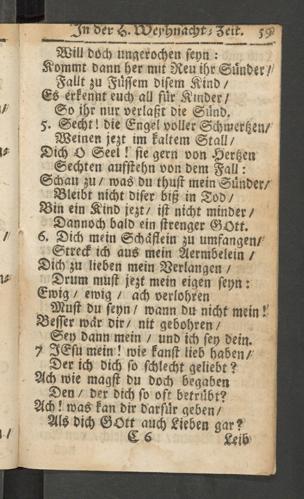 In der H. Weyhnacht, Zeit. 59
Will doch ungerochen seyn:
Kommt dann her mit Reu ihr Sünder/
Fallt zu Füssem disem Kind/
Es erkennt euch all für Kinder/
So ihr nur verlaßt die Sünd.
5. Secht! die Engel voller Schmertzen/
Weinen jezt im kaltem Stall/
Dich O Seel! sie gern von Hertzen
Sechten aufstehn von dem Fall:
Schau zu/ was du thust mein Sünder/
Bleibt nicht diser biß in Tod/
Bin ein Kind jezt/ ist nicht minder/
Dannoch bald ein strenger GOtt.
6. Dich mein Schäflein zu umfangen/
Streck ich aus mein Aermbelein/
Dich zu lieben mein Verlangen/
Drum must jezt mein eigen seyn:
Ewig/ ewig/ ach verlohren
Must du seyn/ wann du nicht mein!
Besser wär dir/ nit gebohren/
Sey dann mein/ und ich sey dein.
7 JEsu mein! wie kanst lieb haben/
Der ich dich so schlecht geliebt?
Ach wie magst du doch begaben
Den/ der dich so oft betrübt?
Ach! was kan dir darfür geben/
Als dich GOtt auch Lieben gar?
C 6 Leib